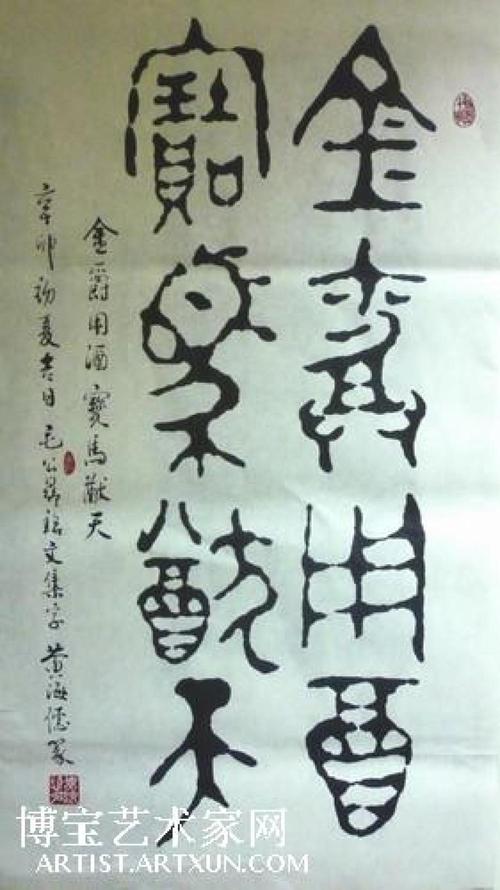 金爵用酒
寶馬猷天
金爵用酒寶馬猷天
辛卯初夏吉日毛公鼎銘文集字黄海
博宝艺术家网
ARTIST.ARTXUN.COM